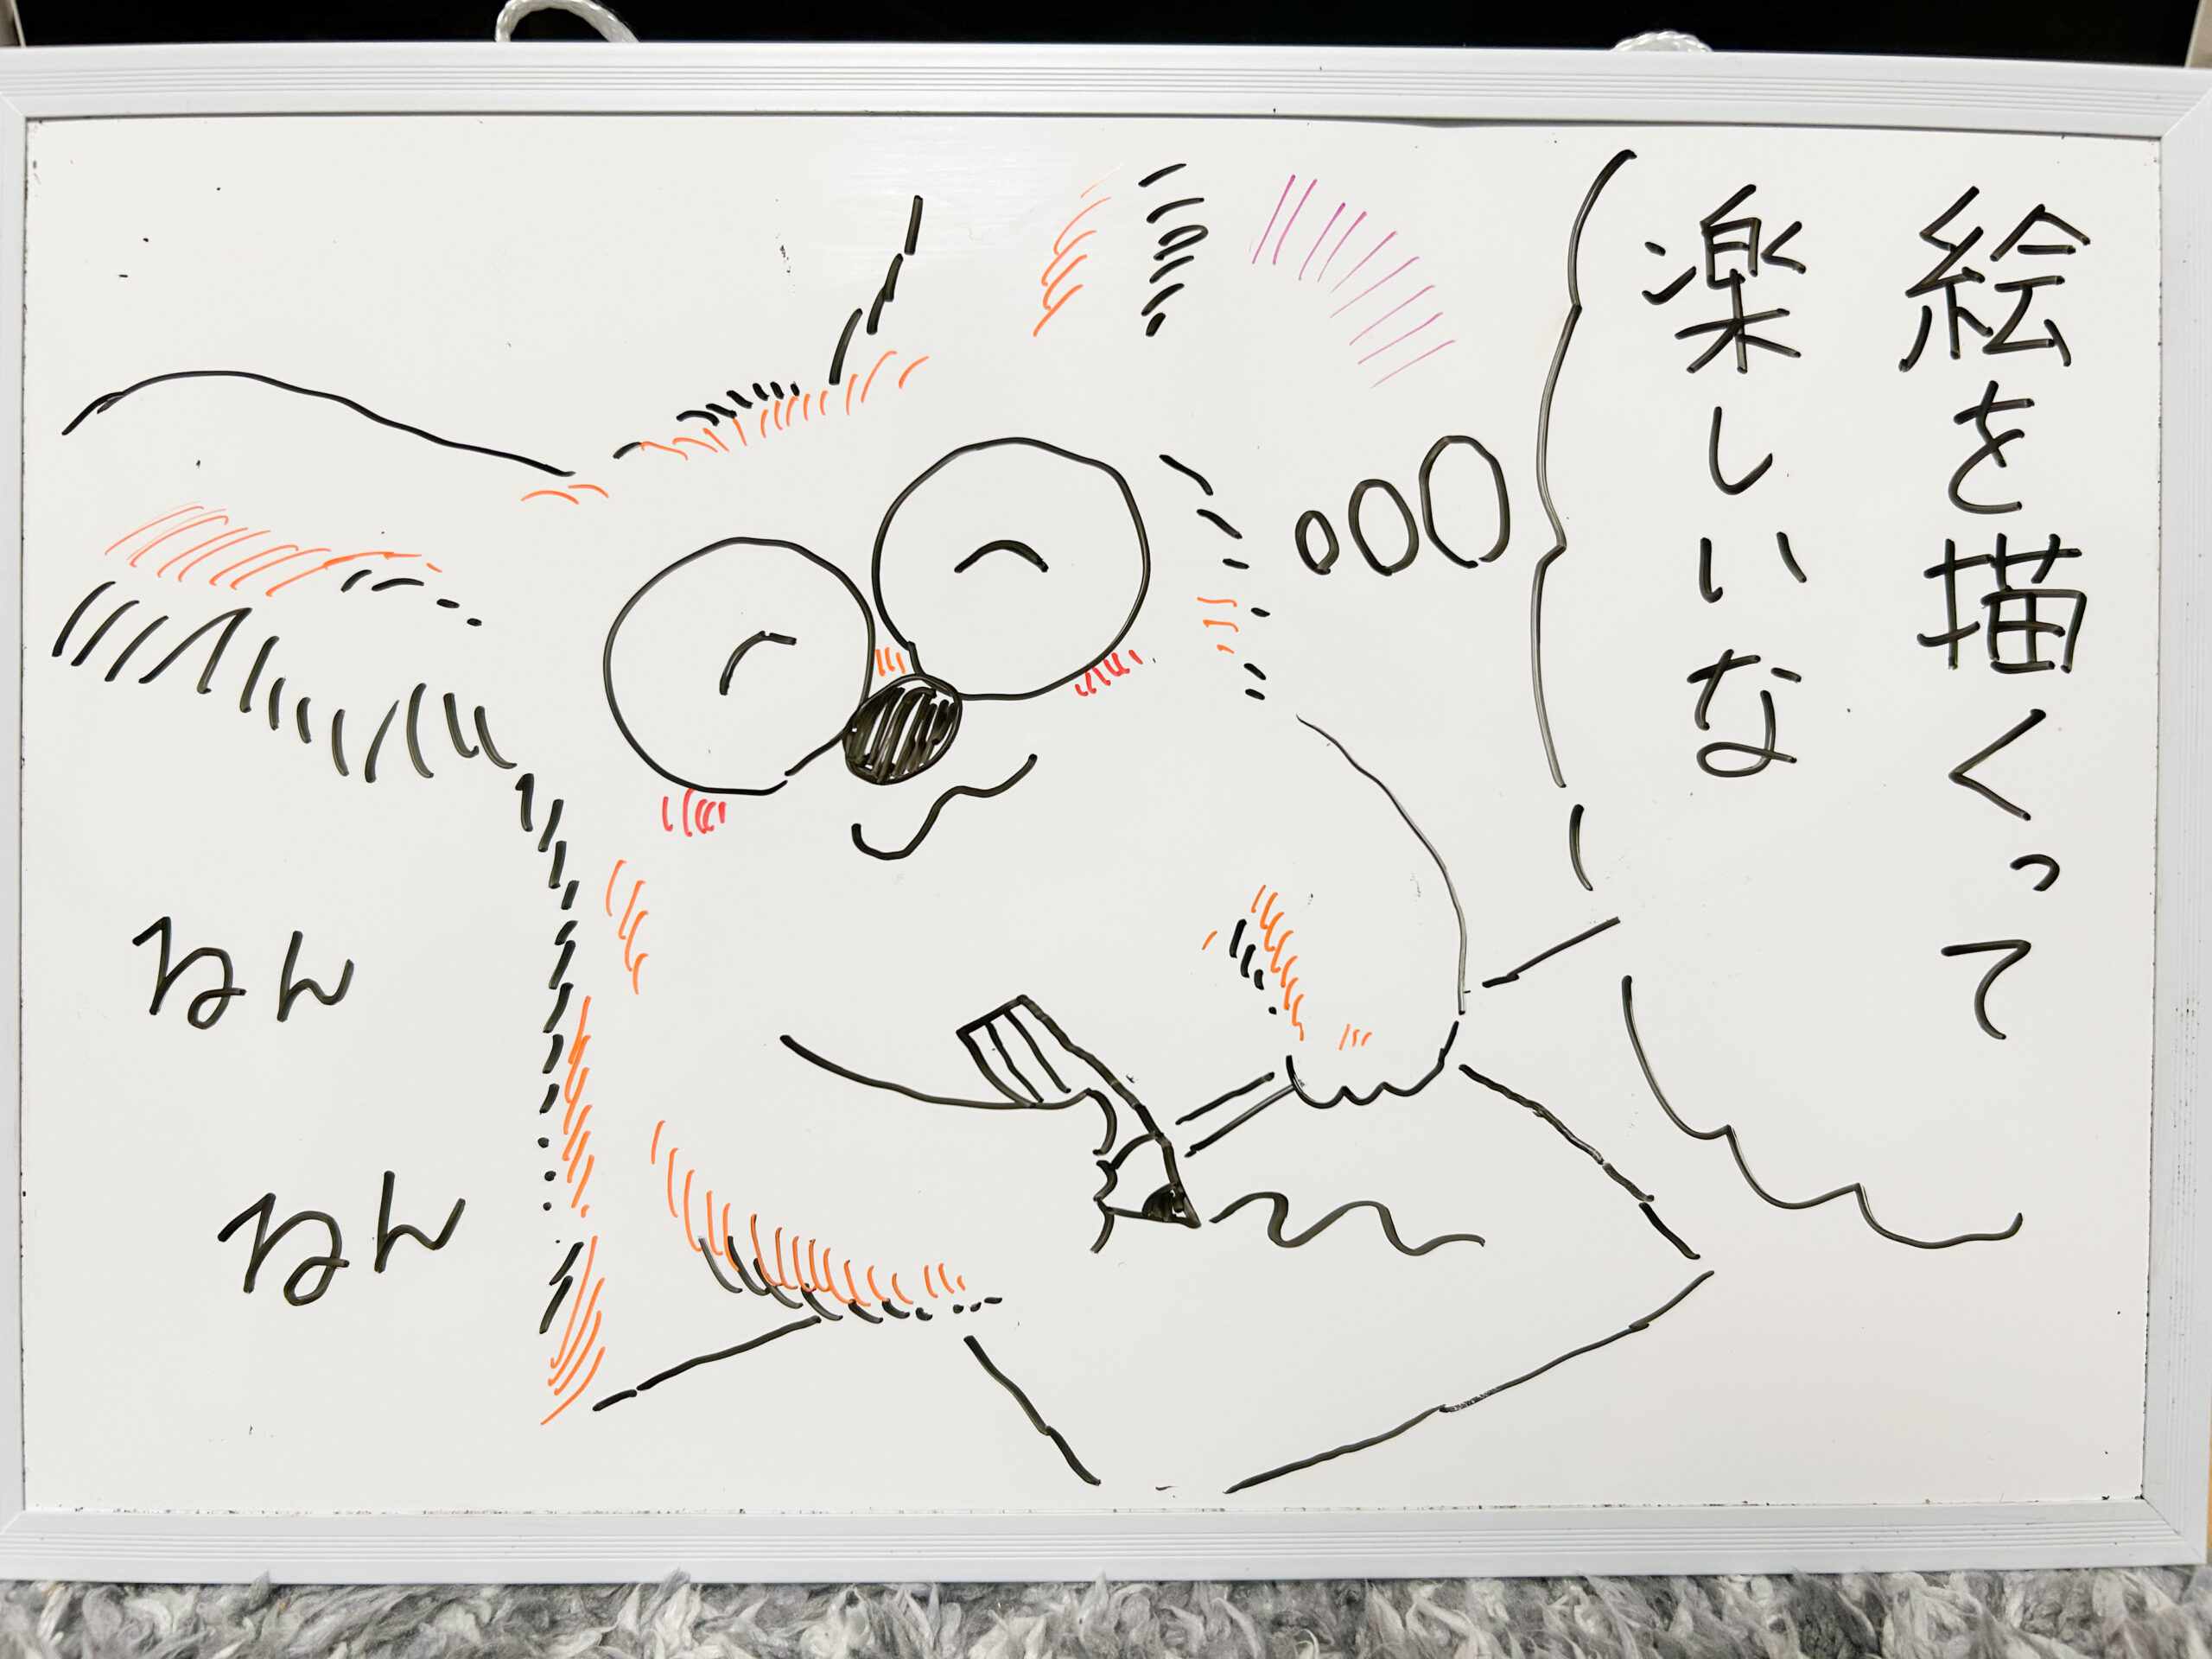 絵を描くって
楽しいな
ねん
ねん